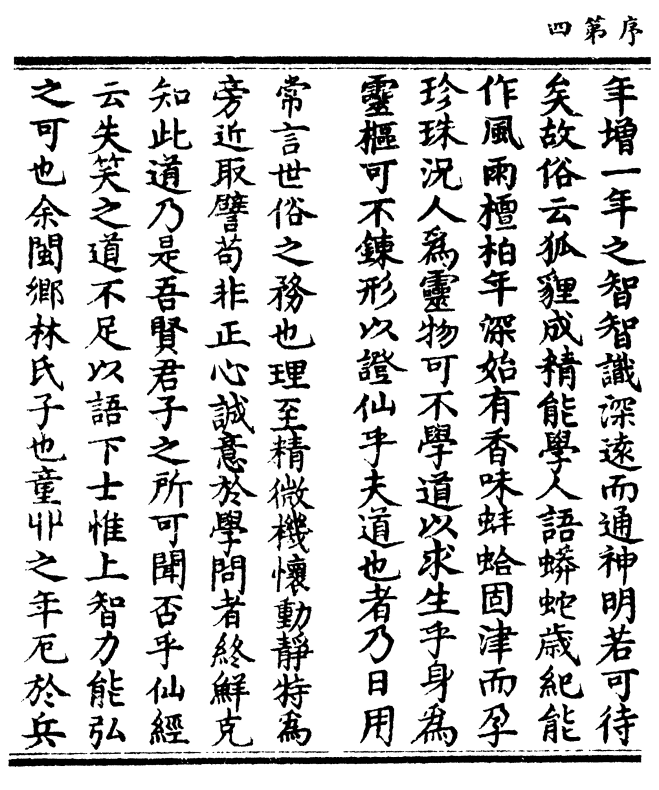 序第四
年增一年之智智識深遠而通神明若可待
矣故俗云狐貍成精能學人語蟒蛇歲紀能
作風雨檀柏年深始有香味蚌蛤固津而孕
珍珠況人爲靈物可不學道以求生乎身爲
靈樞可不鍊形以證仙乎夫道也者乃日用
常言世俗之務也理至精微機懷動靜特爲
旁近取譬苟非正心誠意於學問者終鮮克
知此道乃是吾賢君子之所可聞否乎仙經
云失笑之道不足以語下士惟上智力能弘
之可也余閩鄉林氏子也童丱之年厄於兵